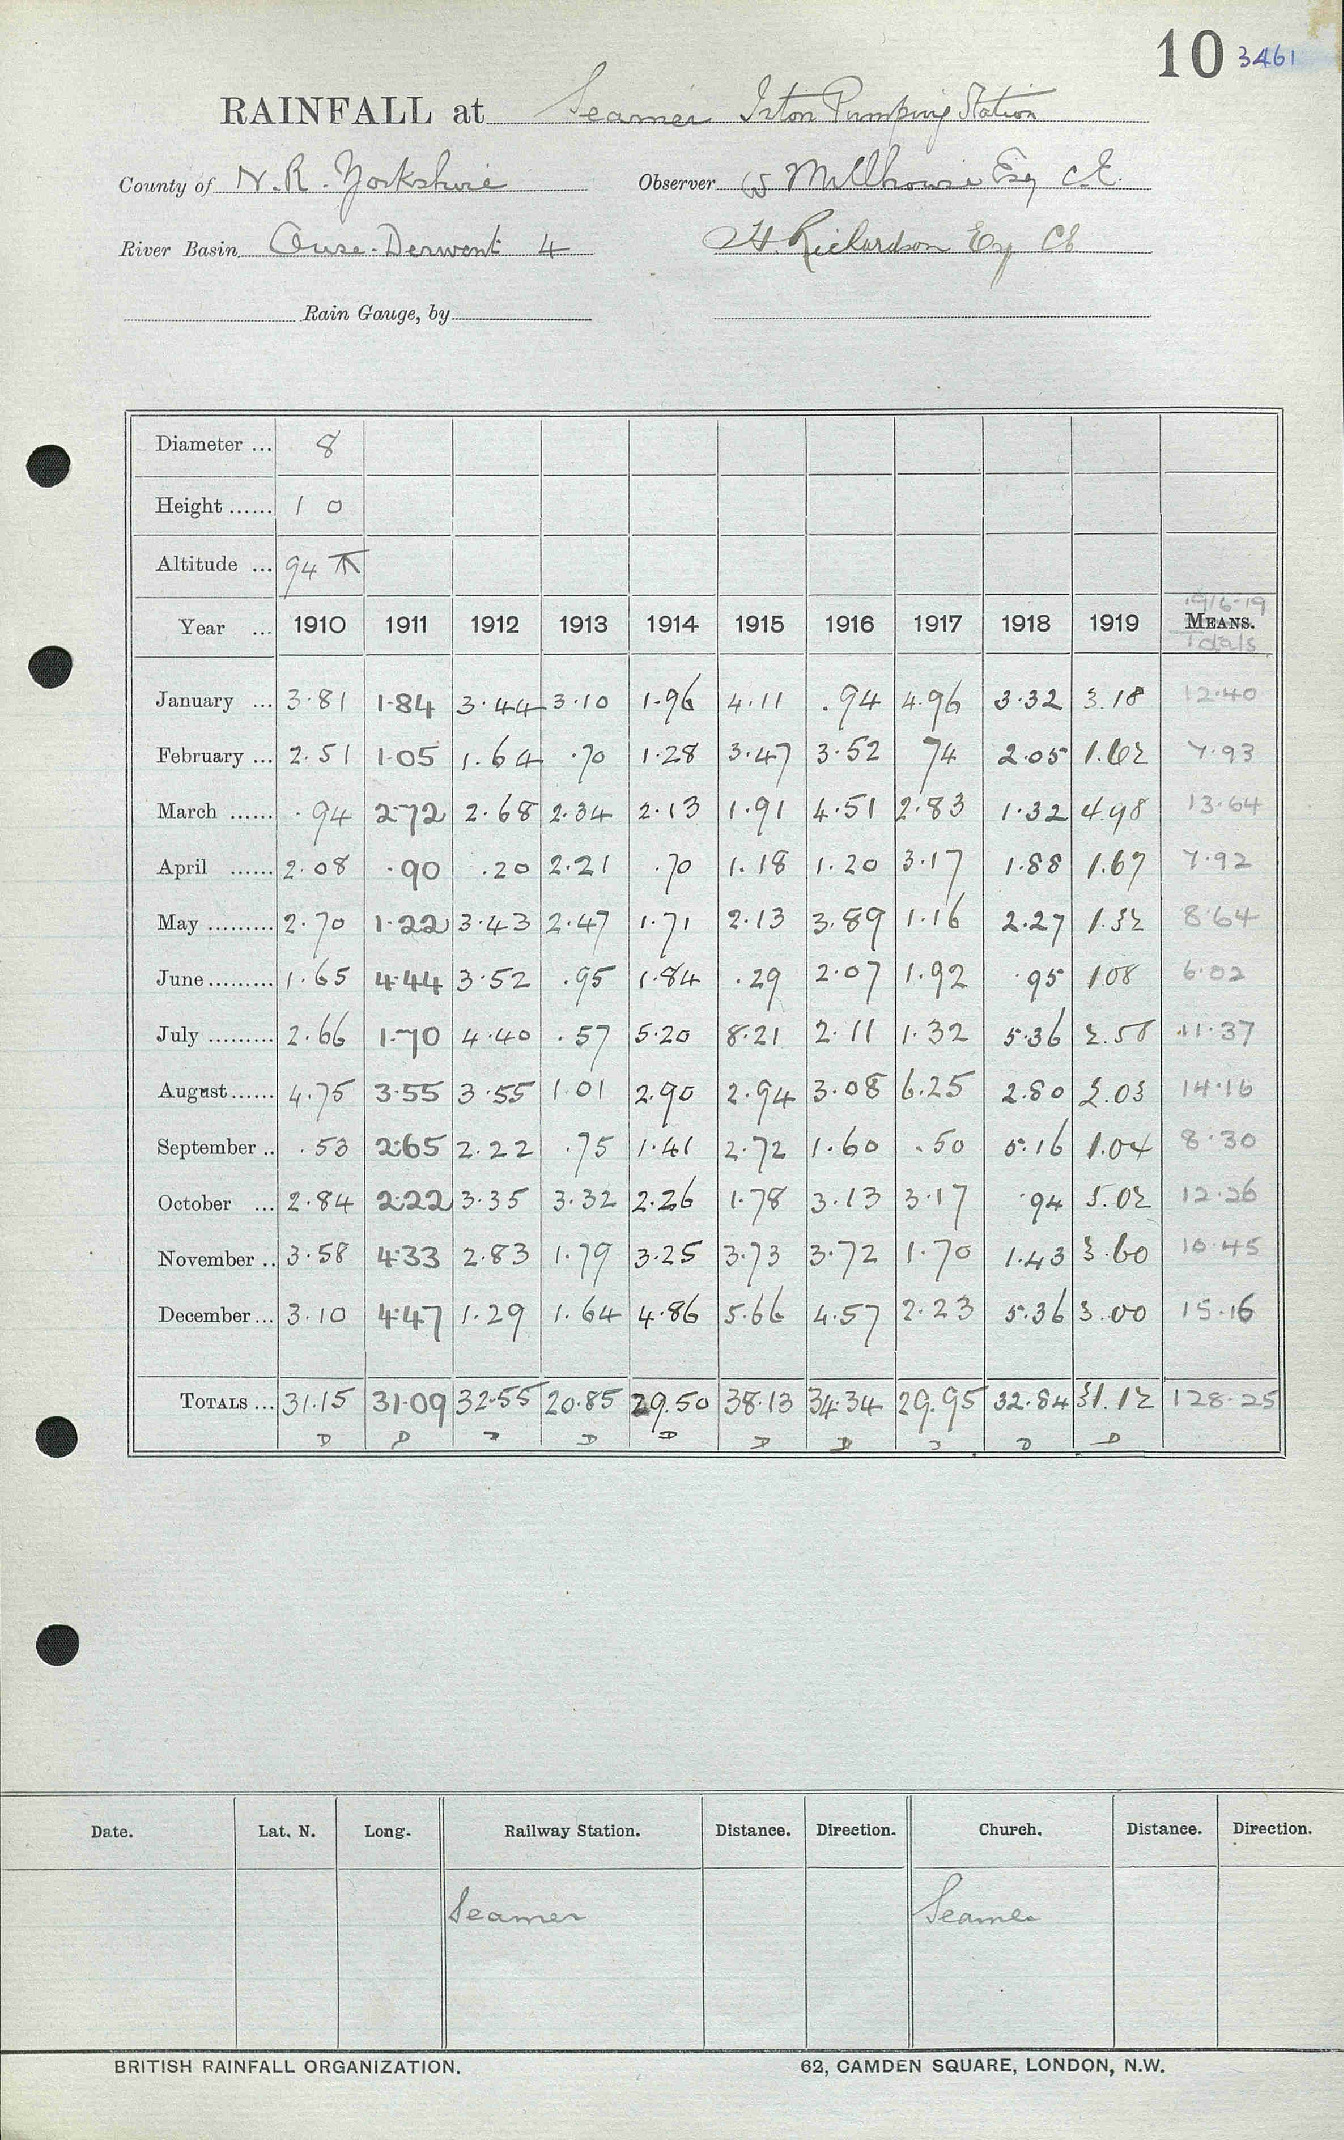 10 3461
RAINFALL at Seamer Irton Pumping Station
County of N.R. Yorkshire Observer W Millhouse Esq C.E.
River Basin Ouse-Derwent 4 H. Richardson Esq CE
Rain Gauge, by
Diameter ... 8
Height ...... 1 0
Altitude ... 94
1916-19
Year ... 1910 1911 1912 1913 1914 1915 1916 1917 1918 1919 MEANS.
Totals
January ... 3.81 1.84 3.44 3.10 1.96 4.11 .94 4.96 3.32 3.18 12.40
February ... 2.51 1.05 1.64 .70 1.28 3.47 3.52 74 2.05 1.62 7.93
March ...... .94 2.72 2.68 2.34 2.13 1.91 4.51 2.83 1.32 4.98 13.64
April ...... 2.08 .90 .20 2.21 .70 1.18 1.20 3.17 1.88 1.67 7.92
May ......... 2.70 1.22 3.43 2.47 1.71 2.13 3.89 1.16 2.27 1.32 8.64
June ......... 1.65 4.44 3.52 .95 1.84 .29 2.07 1.92 .95 1.08 6.02
July ......... 2.66 1.70 4.40 .57 5.20 8.21 2.11 1.32 5.36 2.58 11.37
August ...... 4.75 3.55 3.55 1.01 2.90 2.94 3.08 6.25 2.80 2.03 14.16
September .. .53 2.65 2.22 .75 1.41 2.72 1.60 .50 5.16 1.04 8.30
October ... 2.84 2.22 3.35 3.32 2.26 1.78 3.13 3.17 .94 5.02 12.26
November .. 3.58 4.33 2.83 1.79 3.25 3.73 3.72 1.70 1.43 3.60 10.45
December ... 3.10 4.47 1.29 1.64 4.86 5.66 4.57 2.23 5.36 3.00 15.16
TOTALS ... 31.15 31.09 32.55 20.85 29.50 38.13 34.34 29.95 32.84 31.12 128.25
D D D D D D D D D D
Date. Lat. N. Long. Railway Station. Distance. Direction. Church. Distance. Direction.
Seamer Seamer
BRITISH RAINFALL ORGANIZATION. 62, CAMDEN SQUARE, LONDON, N.W.